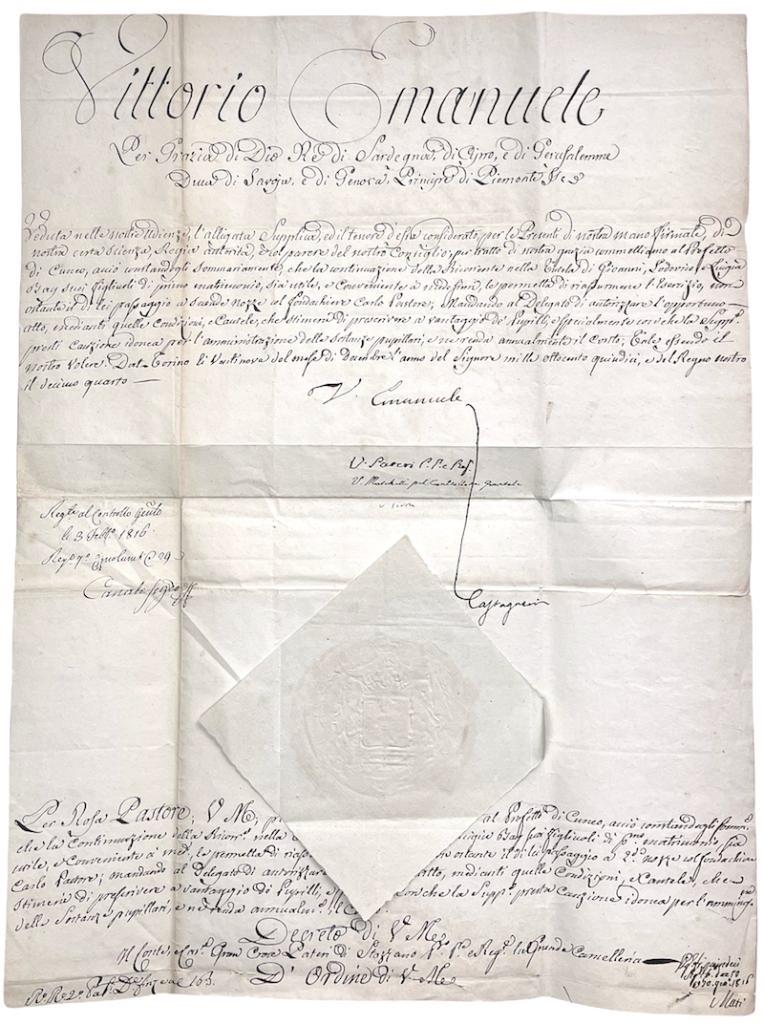 Vittorio Emanuele
Per Grazia di Dio Re di Sardegna, di Cipro, e di Gerusalemme
Duca di Savoja, e di Genova, Principe di Piemonte &c
Veduta nelle nostre Udienze l'alligata Supplica, ed il tenore d'essa considerato; per le Presenti di nostra mano firmate, di
nostra certa scienza, Regia autorità, e col parere del nostro Consiglio; per tratto di nostra grazia commettiamo al Prefetto
di Cuneo, acciò constandogli Sommariamente, che la continuazione della Ricorrente nella tutela di Gioanni, Lodovico e Luigia
suoi figliuoli di primo matrimonio, sia utile, e conveniente a medesimi, le permetta di riassumere l'Esercizio, non
ostante il di lei passaggio a Seconde Nozze col fondachiere Carlo Pastore; Mandando al Delegato di autorizzare l'opportuno
atto, mediante quelle Condizioni, e Cautele, che stimerà di prescrivere a vantaggio de' Pupilli, e specialmente con che la Supp.te
presti Cauzione idonea per l'amministrazione delle Sostanze pupillari, e ne renda annualmente il Conto; Tale essendo il
nostro volere. Dat. Torino li Ventinove del mese di Dicembre l'anno del Signore mille ottocento quindici, e del Regno nostro
il decimo quarto —
V. Emanuele
V. Pateri P. P. e Reg.
V. pel Controllore Generale
Reg.to al Controllo Gen.le
li 3 1816
29
Canale
Per Rosa Pastore; V M; al Prefetto di Cuneo, acciò constandogli somm.
che la Continuazione della Ricor.te nella figliuoli di p.mo matrimonio sia
utile, e Conveniente a med.i, le permetta di ostante il di lei passaggio a 2.e nozze col fondachiere
Carlo Pastore; mandando al Delegato di autorizzare atto, mediante quelle Condizioni, e Cautele, che
Stimerà di prescrivere a vantaggio di Pupilli, con che la Supp.te presta Cauzione idonea per l'amming.e
delle Sostanze pupillari, e ne renda annualm.te il
Decreto di V M
Il Conte, e Gran Croce Pateri di Stazzano P. P. e Reg.e la Grande Cancelleria
D' Ordine di V M